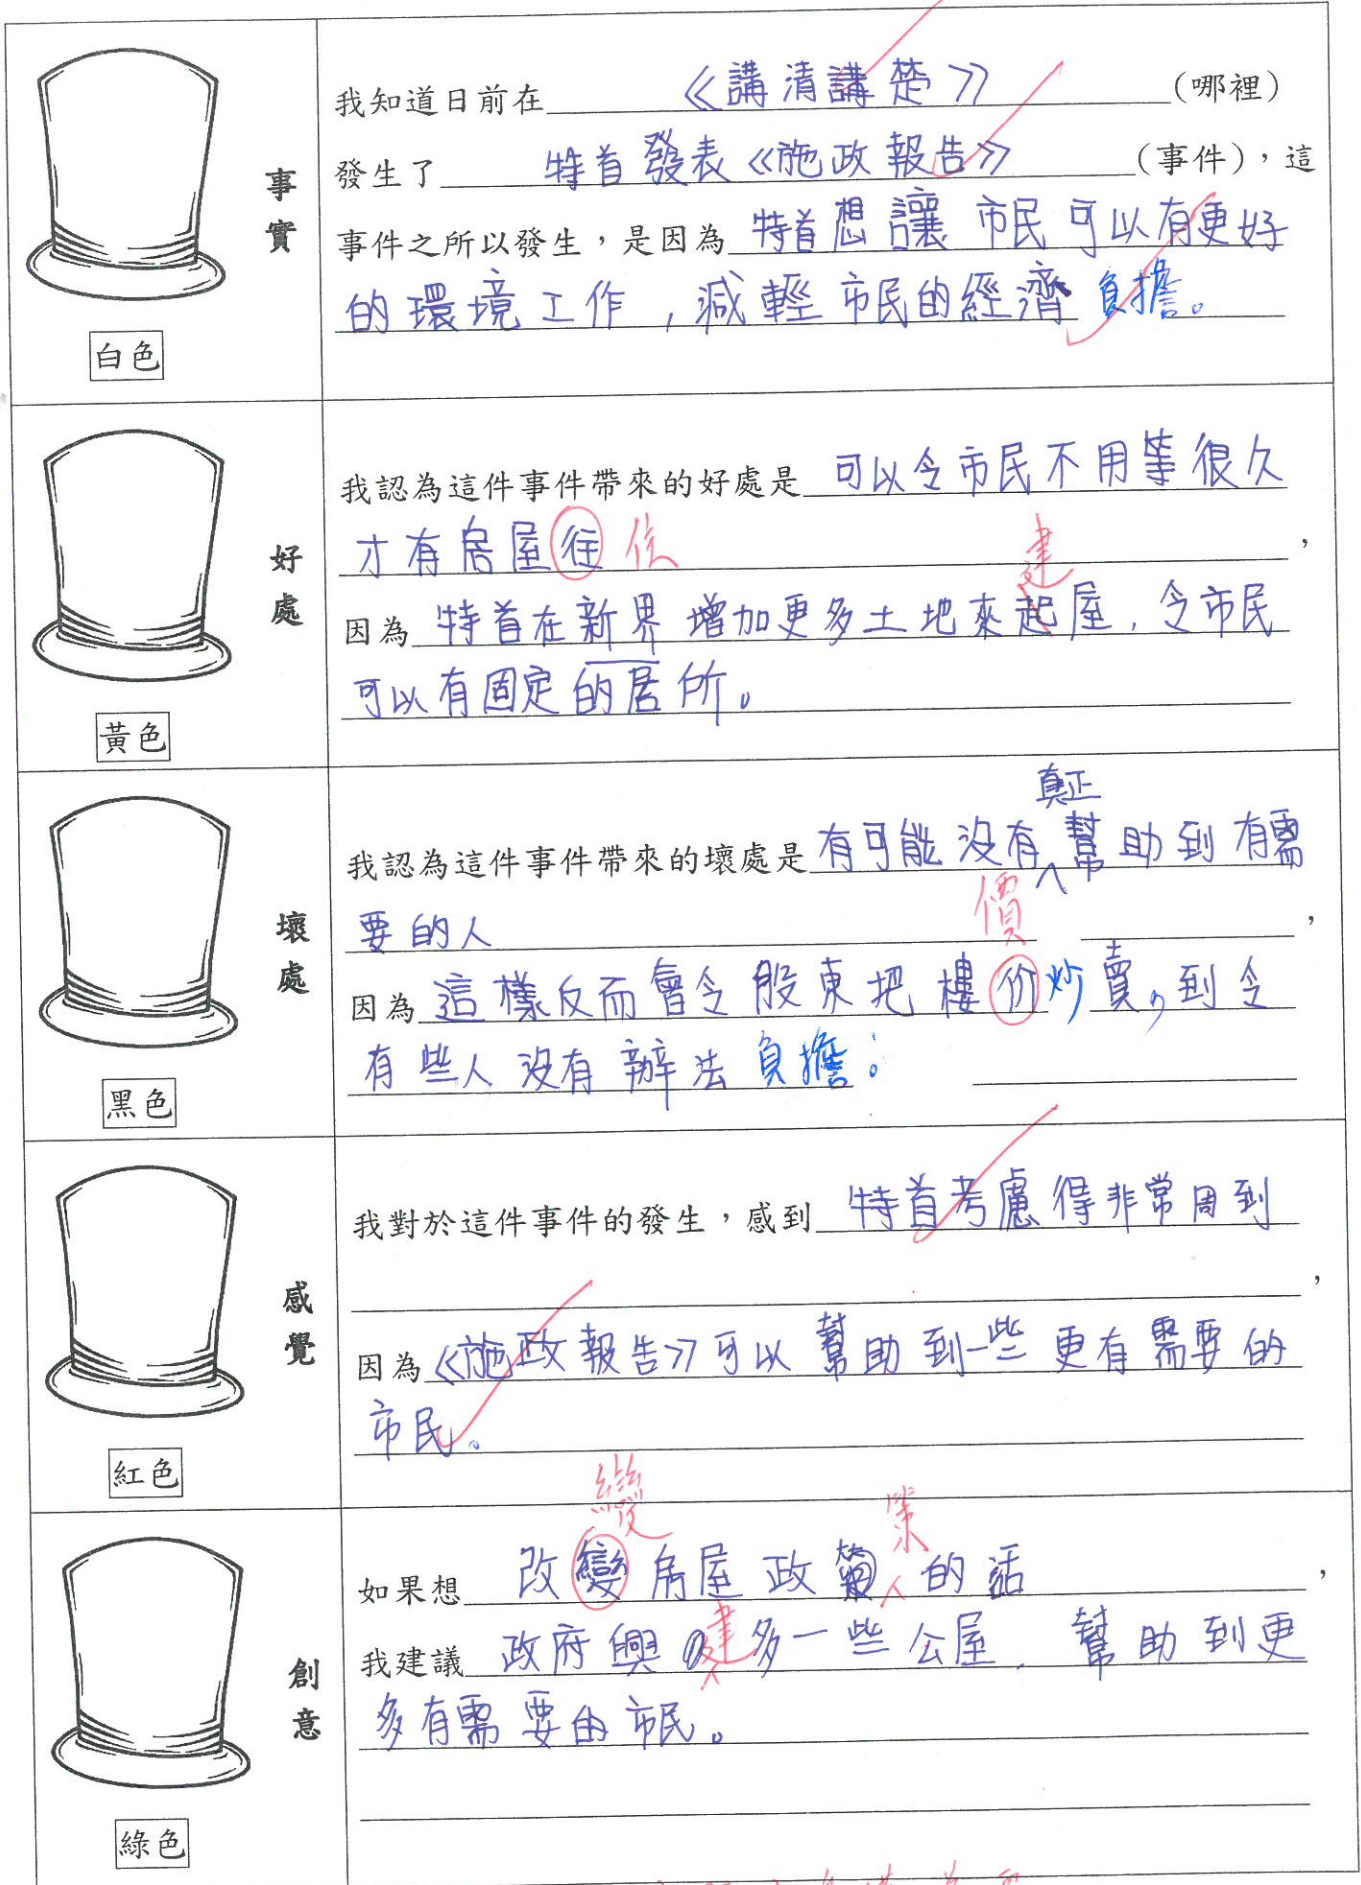 我知道日前在《講清講楚》(哪裡)
發生了特首發表《施政報告》(事件)，這
事實
事件之所以發生，是因為特首想讓市民可以有更好
的環境工作，減輕市民的經濟負擔。
白色
我認為這件事件帶來的好處是可以令市民不用等很久
才有房屋往住，
建
好處
因為特首在新界增加更多土地來起屋，令市民
可以有固定的居所。
黃色
真正
我認為這件事件帶來的壞處是有可能沒有幫助到有需
價
要的人，
壞處
因為這樣反而會令股東把樓价炒賣，到令
有些人沒有辦法負擔。
黑色
我對於這件事件的發生，感到特首考慮得非常周到
，
感覺
因為《施政報告》可以幫助到一些更有需要的
市民。
紅色
變 策
如果想改變房屋政的話，
我建議政府興建多一些公屋，幫助到更
創意
多有需要的市民。
綠色